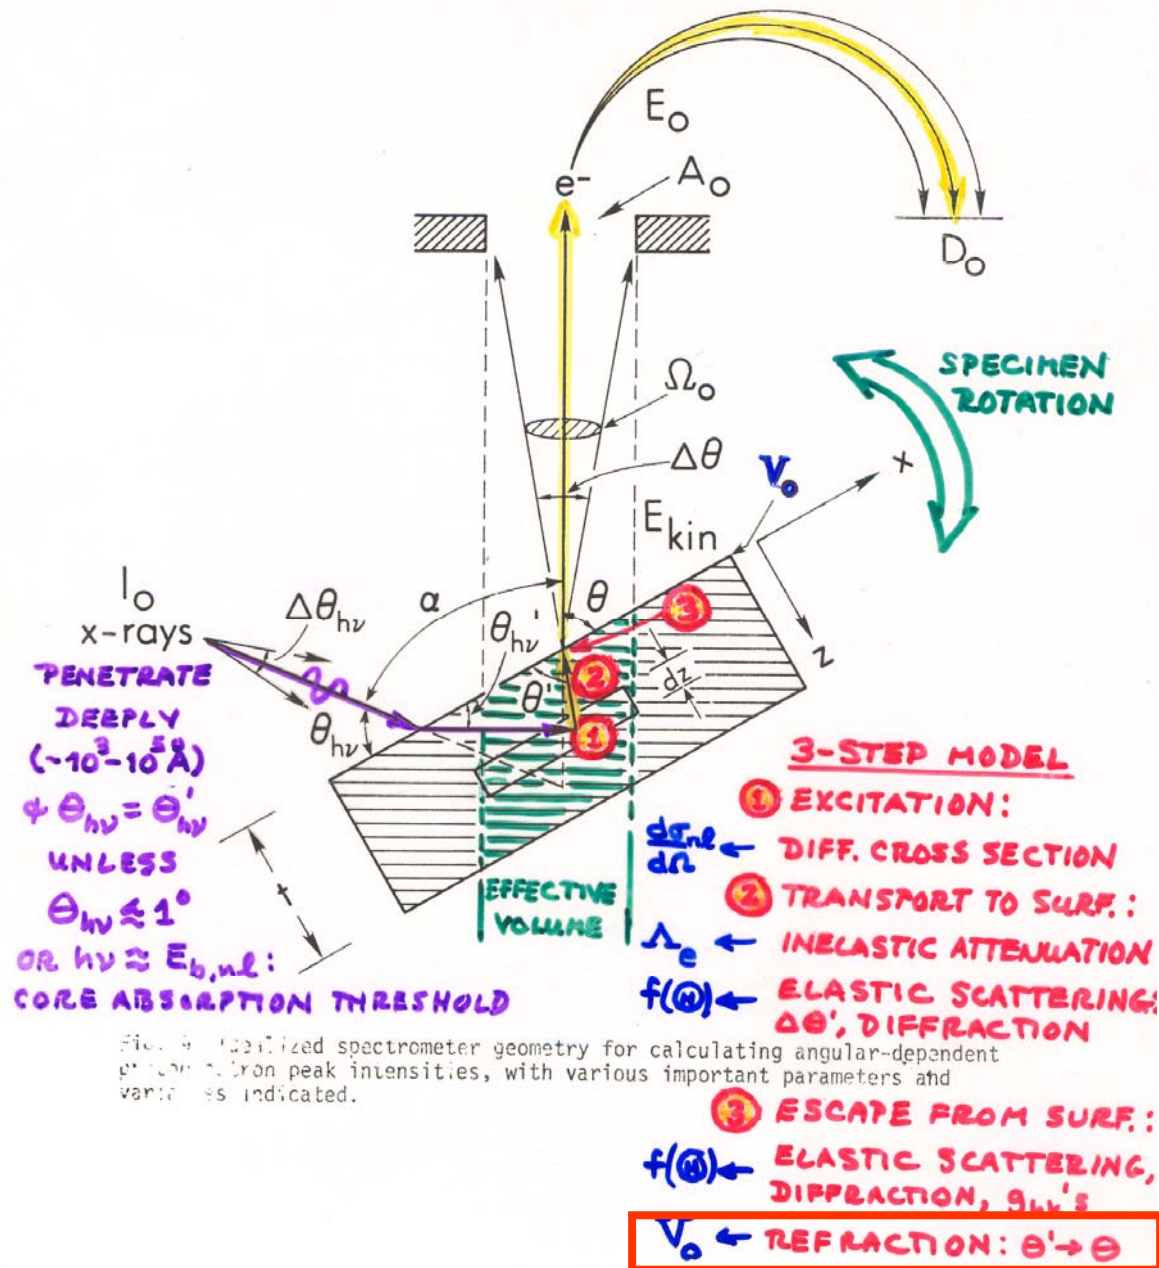 E₀
e⁻
A₀
D₀
SPECIMEN
ROTATION
Ω₀
Δθ
V₀
x
E_kin
I₀
x-rays
Δθ_hν
α
θ_hν'
θ
③
z
PENETRATE
DEEPLY
(~10³-10⁵Å)
& θ_hν = θ'_hν
UNLESS
θ_hν ≲ 1°
OR hν ≈ E_b,nl:
CORE ABSORPTION THRESHOLD
θ_hν
θ'
②
dz
①
t
EFFECTIVE
VOLUME
3-STEP MODEL
① EXCITATION:
dσ_nl/dΩ ← DIFF. CROSS SECTION
② TRANSPORT TO SURF.:
Λ_e ← INELASTIC ATTENUATION
f(Ⓗ) ← ELASTIC SCATTERING:
Δθ', DIFFRACTION
zed spectrometer geometry for calculating angular-dependent
tron peak intensities, with various important parameters and
indicated.
③ ESCAPE FROM SURF.:
f(Ⓗ) ← ELASTIC SCATTERING,
DIFFRACTION, g_hk's
V₀ ← REFRACTION: θ'→θ